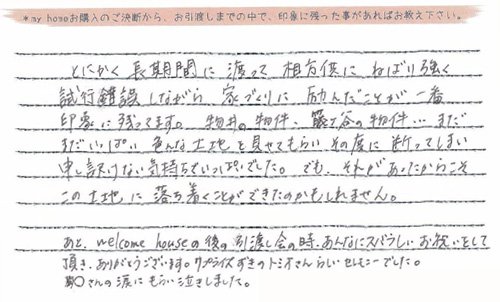 *my homeお購入のご決断から、お引渡しまでの中で、印象に残った事があればお教え下さい。
とにかく長期間に渡って相方供にねばり強く
試行錯誤しながら家づくりに励んだことが一番
印象に残ってます。物井の物件、藤ヶ谷の物件…まだ
まだいっぱい色んな土地を見せてもらいその度に断ってしまい
申し訳けない気持ちでいっぱいでした。でも、それがあったからこそ
この土地に落ち着くことができたのかもしれません。
あと、welcome houseの後の引渡し会の時、あんなにスバラしいお祝いをして
頂き、ありがとうございます。サプライズずきのトミオさんらしいセレモニーでした。
〇さんの涙にもらい泣きしました。